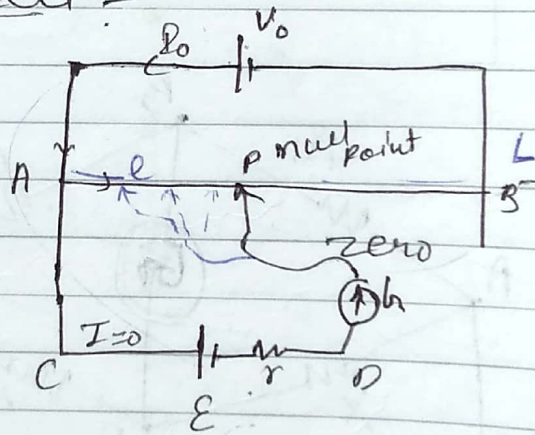 I₀ V₀
A l P null point L
B
zero
G
I=0
C ε r D